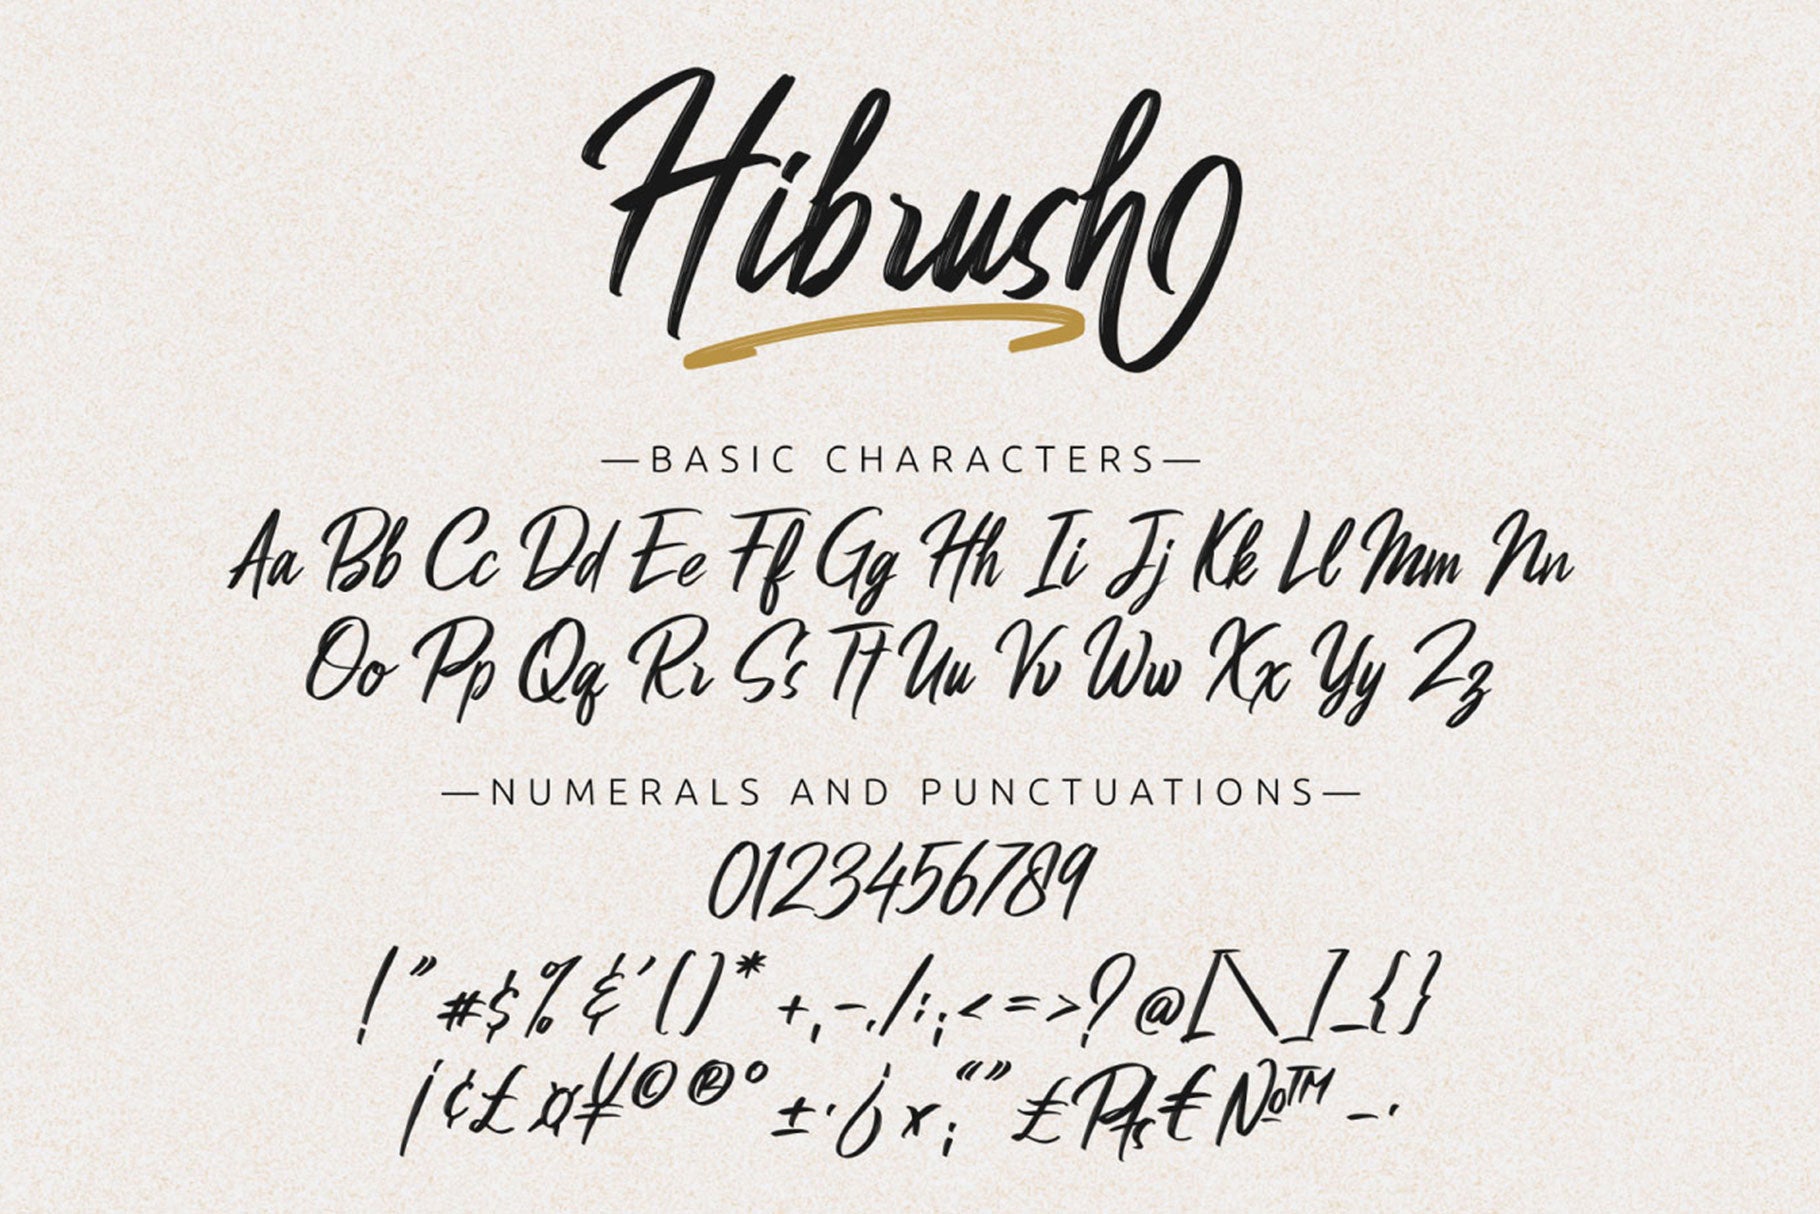 Hibrush
—BASIC CHARACTERS—
Aa Bb Cc Dd Ee Ff Gg Hh Ii Jj Kk Ll Mm Nn
Oo Pp Qq Rr Ss Tt Uu Vv Ww Xx Yy Zz
—NUMERALS AND PUNCTUATIONS—
0123456789
! " # $ % & ' ( ) * + , - . / : ; < = > ? @ [ \ ] _ { }
¡ ¢ £ ¤ ¥ © ® ° ± · ¿ × ; “ ” ₤ ₧ € № ™ – ·